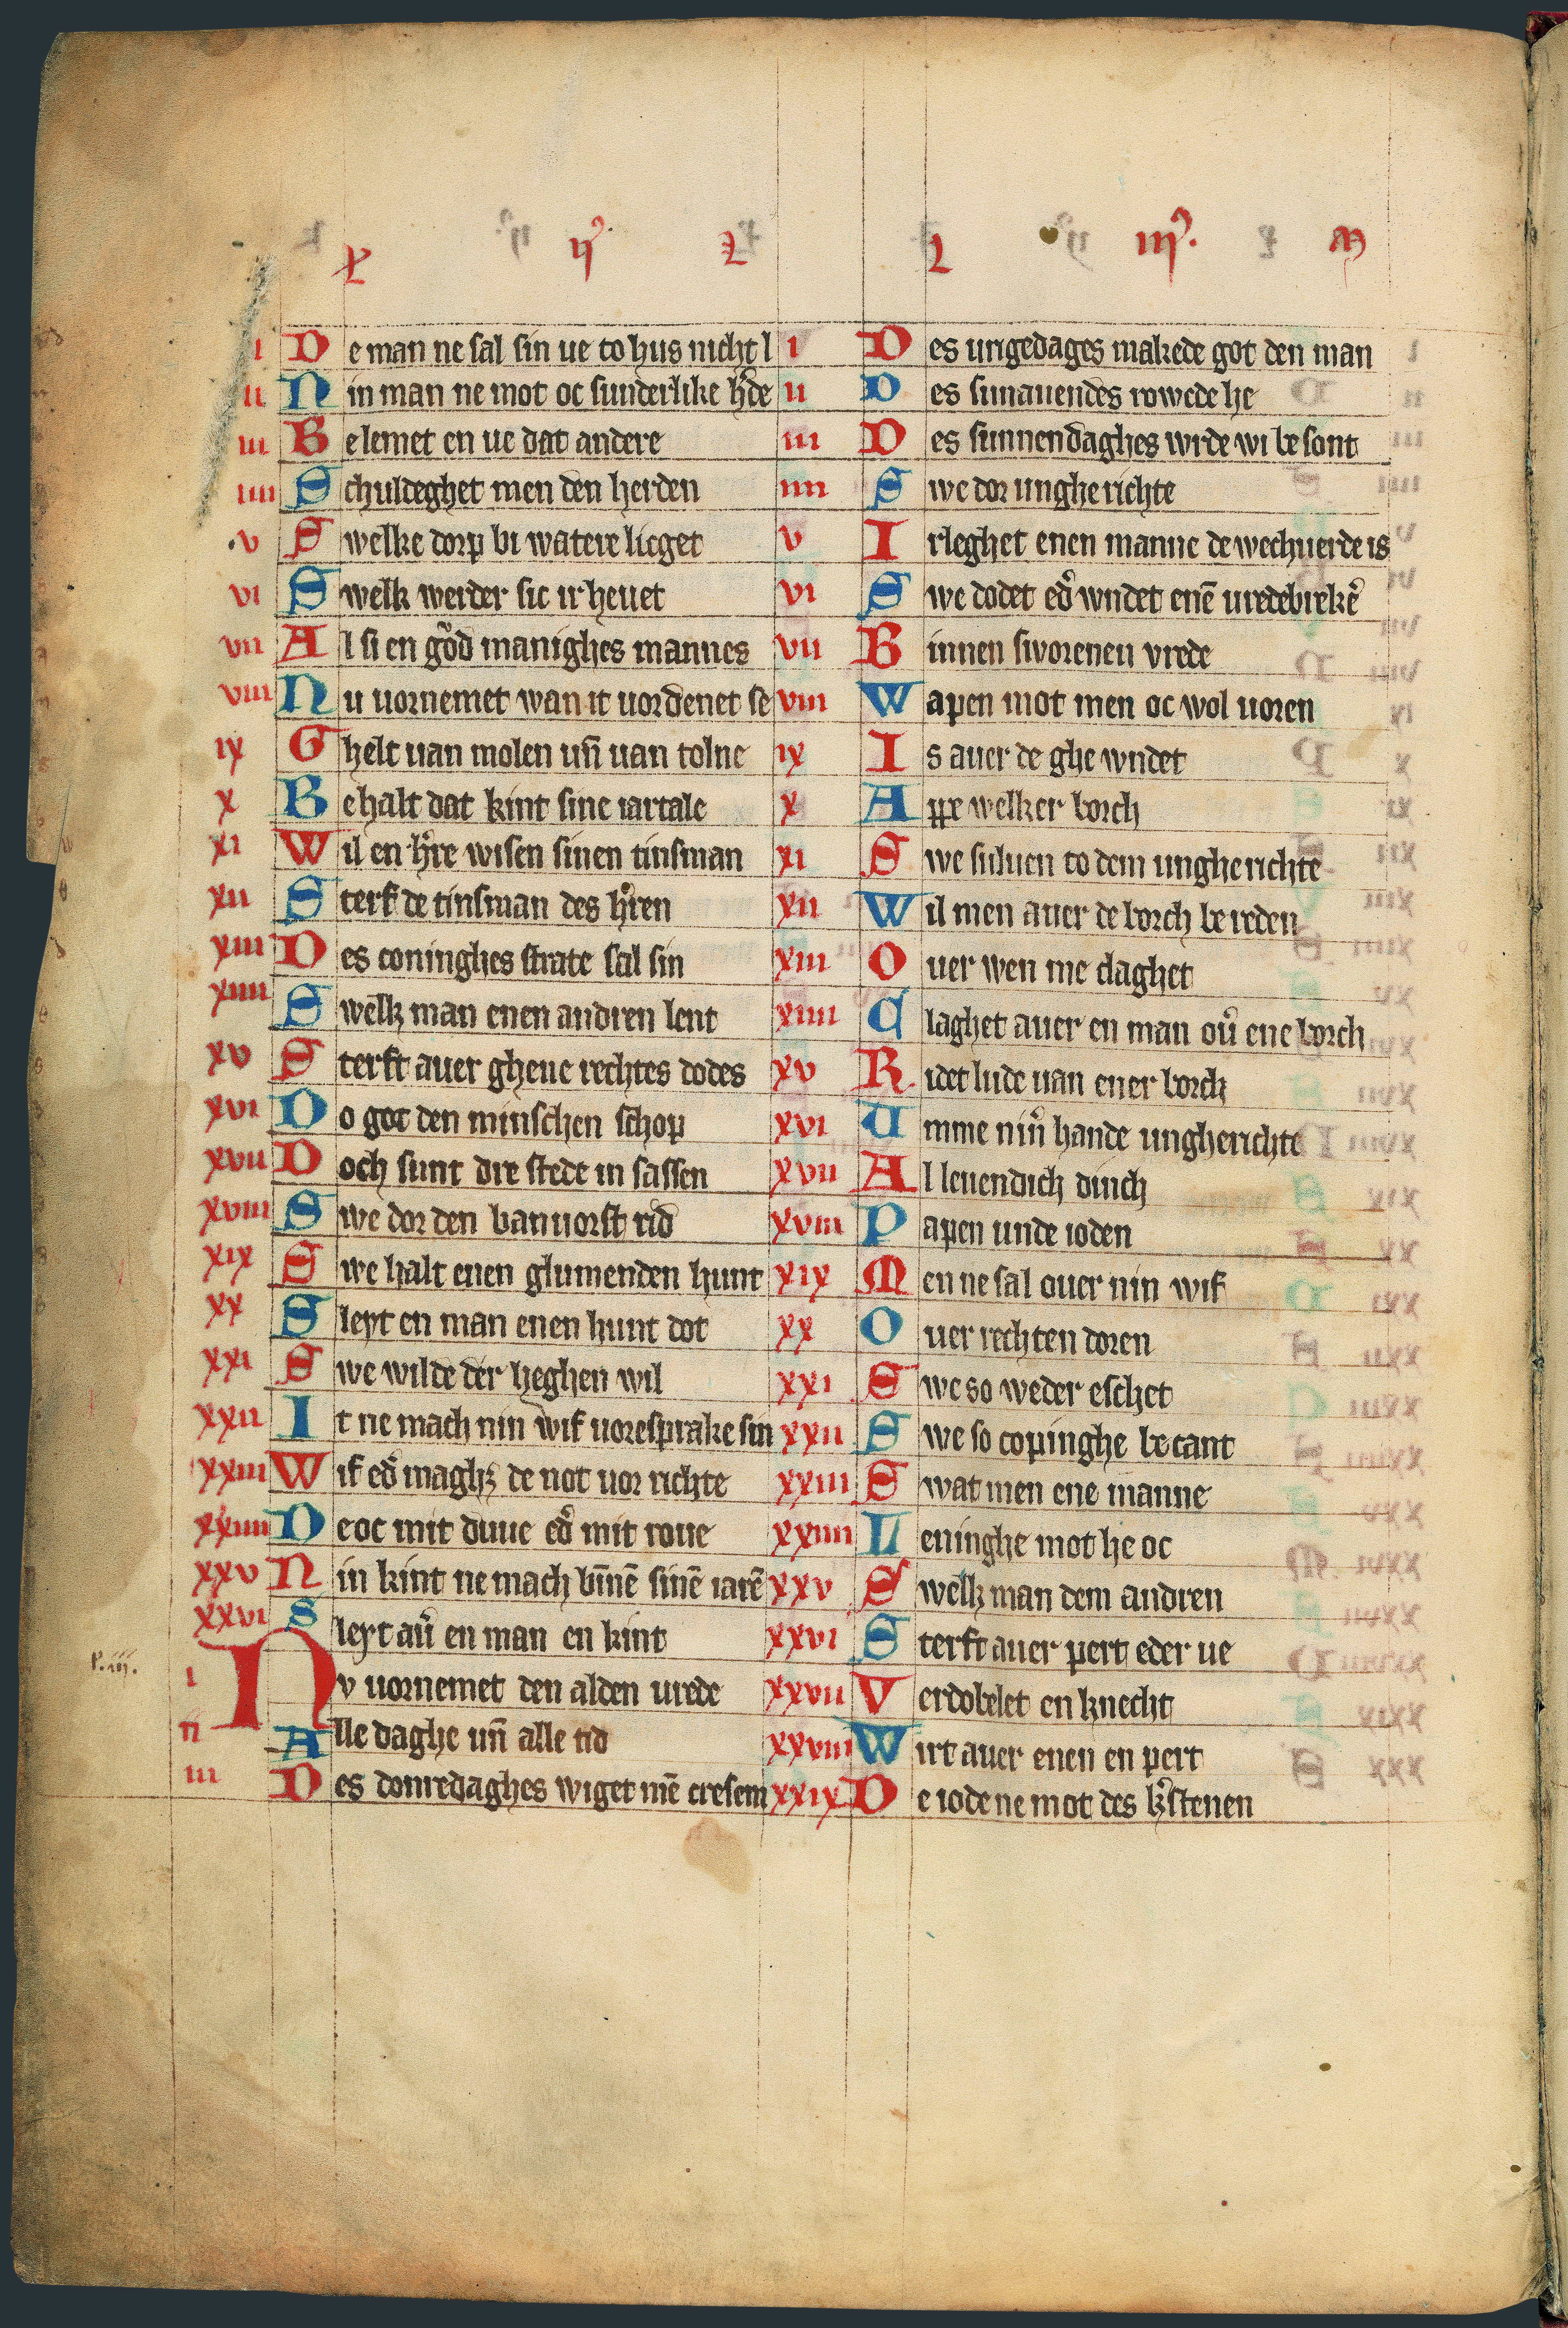 k ij⁹. l l iij⁹. m
i De man ne sal sin ue to hus nicht l
ii Nin man ne mot oc sunderlike h̾de
iii Belemet en ue dat andere
iiii Schuldeghet men den herden
v Swelke dorp bi watere licget
vi Swelk werder sic irheuet
vii Al si en gôd manighes mannes
viii Nu uornemet wan it uordenet se
ix Ghelt uan molen un̄ uan tolne
x Behalt dat kint sine iartale
xi Wil en h̾re wisen sinen tinsman
xii Sterf de tinsman des h̾ren
xiii Des coninghes strate sal sin
xiiii Swelk man enen andren lent
xv Sterft auer gheue rechtes dodes
xvi Do got den minschen schop
xvii Doch sunt dre stede in sassen
xviii Swe dor den banuorst rid
xix Swe halt enen glumenden hunt
xx Sleyt en man enen hunt dot
xxi Swe wilde der heghen wil
xxii It ne mach nin wif uoresprake sin
xxiii Wif ed̾ maghꝫ de not uor richte
xxiiii De oc mit duue ed̾ mit roue
xxv Nin kint ne mach bīnē sinē iarē
xxvi Sleyt au̾ en man en kint
P. iii.
i Nv uornemet den alden urede
ii Alle daghe un̄ alle tid
iii Des donredaghes wiget mē cresem
i Des urigedages makede got den man
ii Des sunauendes rowede he
iii Des sunnendaghes wrde wi besont
iiii Swe dor ungherichte
v Irleghet enen manne de wechuerde is
vi Swe dodet ed̾ wndet enē uredebrekē
vii Binnen sworenen vrede
viii Wapen mot men oc wol uoren
ix Is auer de ghe wndet
x Appe welker borch
xi Swe suluen to dem ungherichte
xii Wil men auer de borch be reden
xiii Ouer wen me claghet
xiiii Claghet auer en man ou̾ ene borch
xv Ridet lude uan ener borch
xvi Umme nin̾ hande ungherichte
xvii Al leuendich dinch
xviii Papen unde ioden
xix Men ne sal ouer nin wif
xx Ouer rechten doren
xxi Swe so weder eschet
xxii Swe so copinghe becant
xxiii Swat men ene manne
xxiiii Leninghe mot he oc
xxv Swelk man dem andren
xxvi Sterft auer pert eder ue
xxvii Verdobelet en knecht
xxviii Wirt auer enen en pert
xxix De iode ne mot des k̾stenen